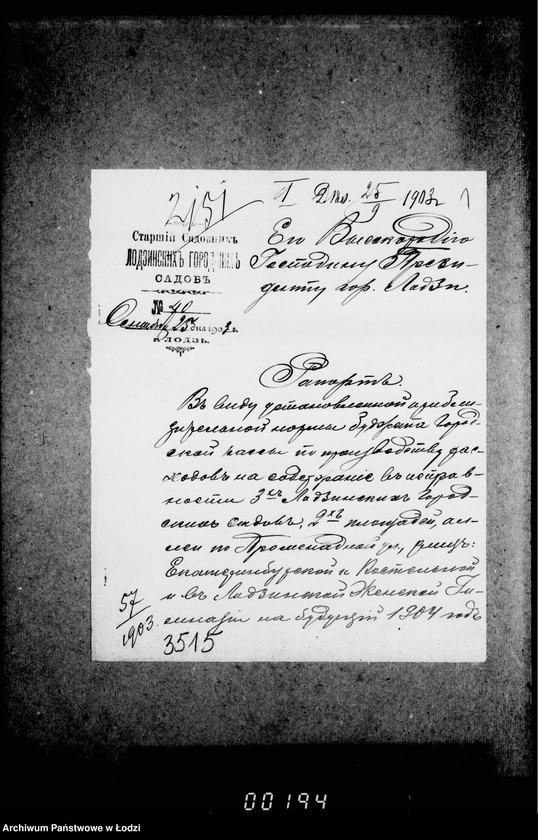 2151
I Дня. 25/9 1903 г
Старшій Садовникъ
ЛОДЗИНСКИХЪ ГОРОДСКИХЪ
САДОВЪ
№ 40
Сентября 25 дня 1903 г.
г. ЛОДЗЬ.
Его Высокородію
Господину Прези-
денту гор. Лодзи.
Рапортъ.
Въ виду установленной прибли-
зительной нормы бюджета Город-
ской кассы по производству рас-
ходовъ на содержаніе въ исправ-
ности 3хъ Лодзинскихъ Город-
скихъ садовъ, 2хъ площадей, ал-
леи по Променадной ул., улицъ:
Екатеринбургской и Костельной
и въ Лодзинской Женской Ги-
мназіи на будущій 1904 годъ
57/1903.
3515
00194
Archiwum Państwowe w Łodzi